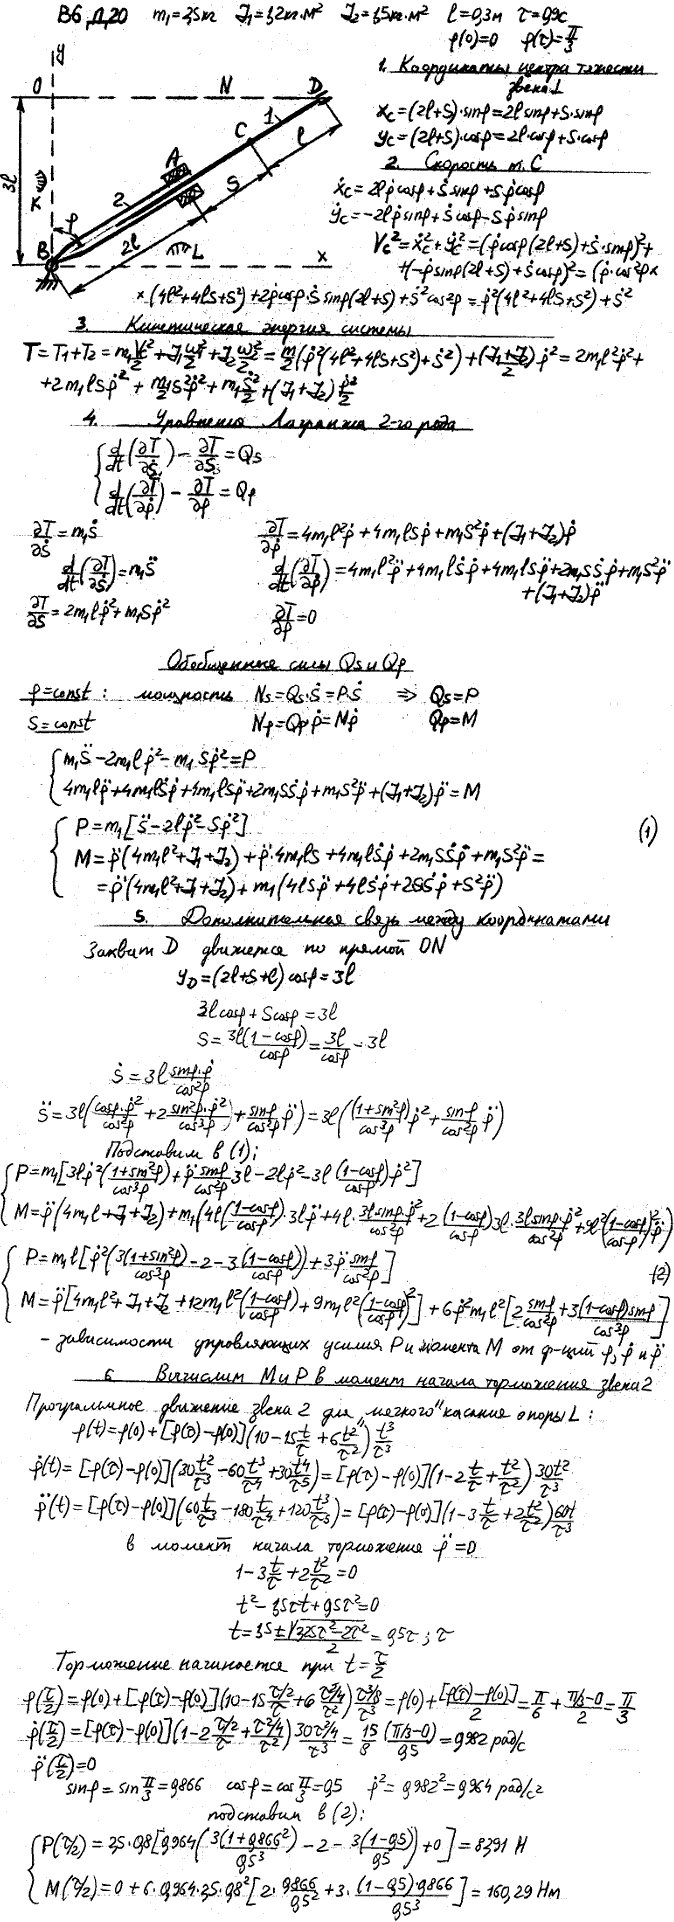 В6, Д.20 m₁=2,5кг J₁=1,2кг·м² J₂=1,5кг·м² l=0,3м τ=0,9с
φ(0)=0 φ(τ)=π/3
y
O N D
1
C
l
A
S
2
3l
K
φ
2l
L
B
x
1. Координаты центра тяжести
звена 1
x_C=(2l+S)·sinφ=2l sinφ+S·sinφ
y_C=(2l+S)·cosφ=2l·cosφ+S·cosφ
2. Скорость т. C
ẋ_C=2lφ̇cosφ+Ṡsinφ+Sφ̇cosφ
ẏ_C=-2lφ̇sinφ+Ṡcosφ-Sφ̇sinφ
V_C²=ẋ_C²+ẏ_C²=(φ̇cosφ(2l+S)+Ṡ·sinφ)²+
+(-φ̇sinφ(2l+S)+Ṡcosφ)²=(φ̇·cos²φ×
×(4l²+4lS+S²)+2φ̇cosφ·Ṡsinφ(2l+S)+Ṡ²cos²φ=φ̇²(4l²+4lS+S²)+Ṡ²
3. Кинетическая энергия системы
T=T₁+T₂=m₁V_C²/2+J₁ω₁²/2+J₂ω₂²/2=m/2(φ̇²(4l²+4lS+S²)+Ṡ²)+(J₁+J₂)/2 φ̇²=2m₁l²φ̇²+
+2m₁lSφ̇²+m₁/2 S²φ̇²+m₁Ṡ²/2+(J₁+J₂)φ̇²/2
4. Уравнения Лагранжа 2-го рода
d/dt(∂T/∂Ṡ)-∂T/∂S=Q_S
d/dt(∂T/∂φ̇)-∂T/∂φ=Q_φ
∂T/∂Ṡ=m₁Ṡ ∂T/∂φ̇=4m₁l²φ̇+4m₁lSφ̇+m₁S²φ̇+(J₁+J₂)φ̇
d/dt(∂T/∂Ṡ)=m₁S̈ d/dt(∂T/∂φ̇)=4m₁l²φ̈+4m₁lṠφ̇+4m₁lSφ̈+2m₁SṠφ̇+m₁S²φ̈+
+(J₁+J₂)φ̈
∂T/∂S=2m₁lφ̇²+m₁Sφ̇² ∂T/∂φ=0
Обобщенные силы Q_S и Q_φ
φ=const: мощность N_S=Q_S·Ṡ=P·Ṡ ⇒ Q_S=P
S=const N_φ=Q_φ·φ̇=Mφ̇ Q_φ=M
m₁S̈-2m₁lφ̇²-m₁Sφ̇²=P
4m₁lφ̈+4m₁lṠφ̇+4m₁lSφ̈+2m₁SṠφ̇+m₁S²φ̈+(J₁+J₂)φ̈=M
P=m₁[S̈-2lφ̇²-Sφ̇²] (1)
M=φ̈(4m₁l²+J₁+J₂)+φ̈·4m₁lS+4m₁lṠφ̇+2m₁SṠφ̇+m₁S²φ̈=
=φ̈(4m₁l²+J₁+J₂)+m₁(4lSφ̈+4lṠφ̇+2SṠφ̇+S²φ̈)
5. Дополнительная связь между координатами
Захват D движется по прямой ON
y_D=(2l+S+l)cosφ=3l
3l cosφ+S cosφ=3l
S=3l(1-cosφ)/cosφ=3l/cosφ-3l
Ṡ=3l sinφ·φ̇/cos²φ
S̈=3l(cosφ·φ̇²/cos²φ+2sin²φ·φ̇²/cos³φ+sinφ/cos²φ φ̈)=3l((1+sin²φ)/cos³φ φ̇²+sinφ/cos²φ φ̈)
Подставим в (1):
P=m₁[3lφ̇²(1+sin²φ)/cos³φ+φ̈ sinφ/cos²φ 3l-2lφ̇²-3l(1-cosφ)/cosφ φ̇²]
M=φ̈(4m₁l+J₁+J₂)+m₁(4l(1-cosφ)/cosφ·3lφ̈+4l·3l sinφ·φ̇²/cos²φ+2(1-cosφ)/cosφ 3l·3l sinφ·φ̇²/cos²φ+9l²((1-cosφ)/cosφ)²φ̈)
P=m₁l[φ̇²(3(1+sin²φ)/cos³φ-2-3(1-cosφ)/cosφ)+3φ̈ sinφ/cos²φ] (2)
M=φ̈[4m₁l²+J₁+J₂+12m₁l²(1-cosφ)/cosφ+9m₁l²((1-cosφ)/cosφ)²]+6φ̇²m₁l²[2 sinφ/cos²φ+3(1-cosφ)sinφ/cos³φ]
- зависимости управляющих усилия P и момента M от ф-ций φ, φ̇ и φ̈
6 Вычислим M и P в момент начала торможения звена 2
Программное движение звена 2 для „мягкого" касания опоры L:
φ(t)=φ(0)+[φ(τ)-φ(0)](10-15t/τ+6t²/τ²)t³/τ³
φ̇(t)=[φ(τ)-φ(0)](30t²/τ³-60t³/τ⁴+30t⁴/τ⁵)=[φ(τ)-φ(0)](1-2t/τ+t²/τ²)30t²/τ³
φ̈(t)=[φ(τ)-φ(0)](60t/τ³-180t²/τ⁴+120t³/τ⁵)=[φ(τ)-φ(0)](1-3t/τ+2t²/τ²)60t/τ³
в момент начала торможения φ̈=0
1-3t/τ+2t²/τ²=0
t²-1,5τt+0,5τ²=0
t=(1,5±√(2,25τ²-2τ²))/2=0,5τ; τ
Торможение начинается при t=τ/2
φ(τ/2)=φ(0)+[φ(τ)-φ(0)](10-15(τ/2)/τ+6(τ²/4)/τ²)(τ³/8)/τ³=φ(0)+[φ(τ)-φ(0)]/2=π/6+(π/3-0)/2=π/3
φ̇(τ/2)=[φ(τ)-φ(0)](1-2(τ/2)/τ+(τ²/4)/τ²)(30τ²/4)/τ³=15/8·(π/3-0)/0,5=0,982 рад/с
φ̈(τ/2)=0
sinφ=sin π/3=0,866 cosφ=cos π/3=0,5 φ̇²=0,982²=0,964 рад/с²
подставим в (2):
P(τ/2)=2,5·0,8[0,964(3(1+0,866²)/0,5³-2-3(1-0,5)/0,5)+0]=83,91 Н
M(τ/2)=0+6·0,964·2,5·0,8²[2·0,866/0,5²+3·(1-0,5)·0,866/0,5³]=160,29 Нм